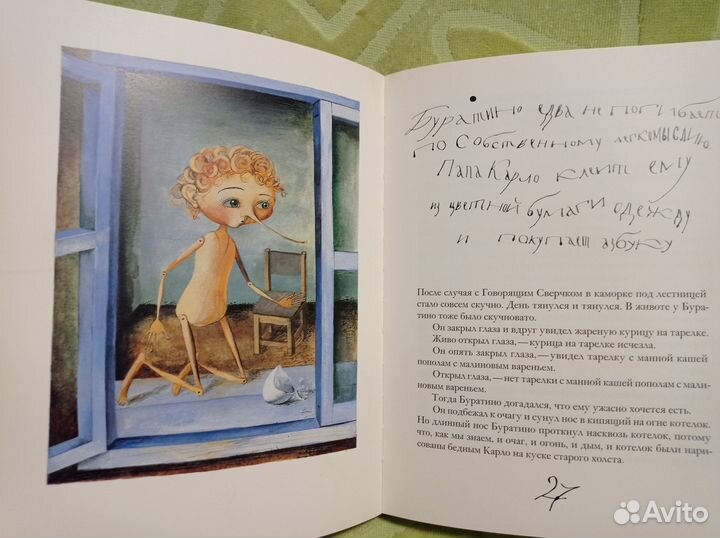 Буратино едва не погибает
по Собственному легкомыслию.
Папа Карло клеит ему
из цветной бумаги одежду
и покупает азбуку
После случая с Говорящим Сверчком в каморке под лестницей
стало совсем скучно. День тянулся и тянулся. В животе у Бура-
тино тоже было скучновато.
Он закрыл глаза и вдруг увидел жареную курицу на тарелке.
Живо открыл глаза,— курица на тарелке исчезла.
Он опять закрыл глаза,— увидел тарелку с манной кашей
пополам с малиновым вареньем.
Открыл глаза,— нет тарелки с манной кашей пополам с мали-
новым вареньем.
Тогда Буратино догадался, что ему ужасно хочется есть.
Он подбежал к очагу и сунул нос в кипящий на огне котелок.
Но длинный нос Буратино проткнул насквозь котелок, потому
что, как мы знаем, и очаг, и огонь, и дым, и котелок были нари-
сованы бедным Карло на куске старого холста.
27
Avito